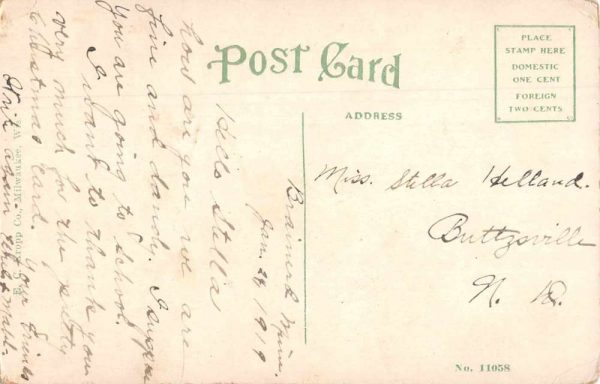 POST CARD
PLACE
STAMP HERE
DOMESTIC
ONE CENT
FOREIGN
TWO CENTS
ADDRESS
Minn.
Jan. 26 1919
Hello Stella
how are you we are
fine and dandy. I suppose
you are going to school.
I want to thank you
very much for the pretty
Christmas card. Your friends
Write again
Miss. Stella Helland.
Buttzville
N. D.
Co., Milwaukee, W
No. 11058